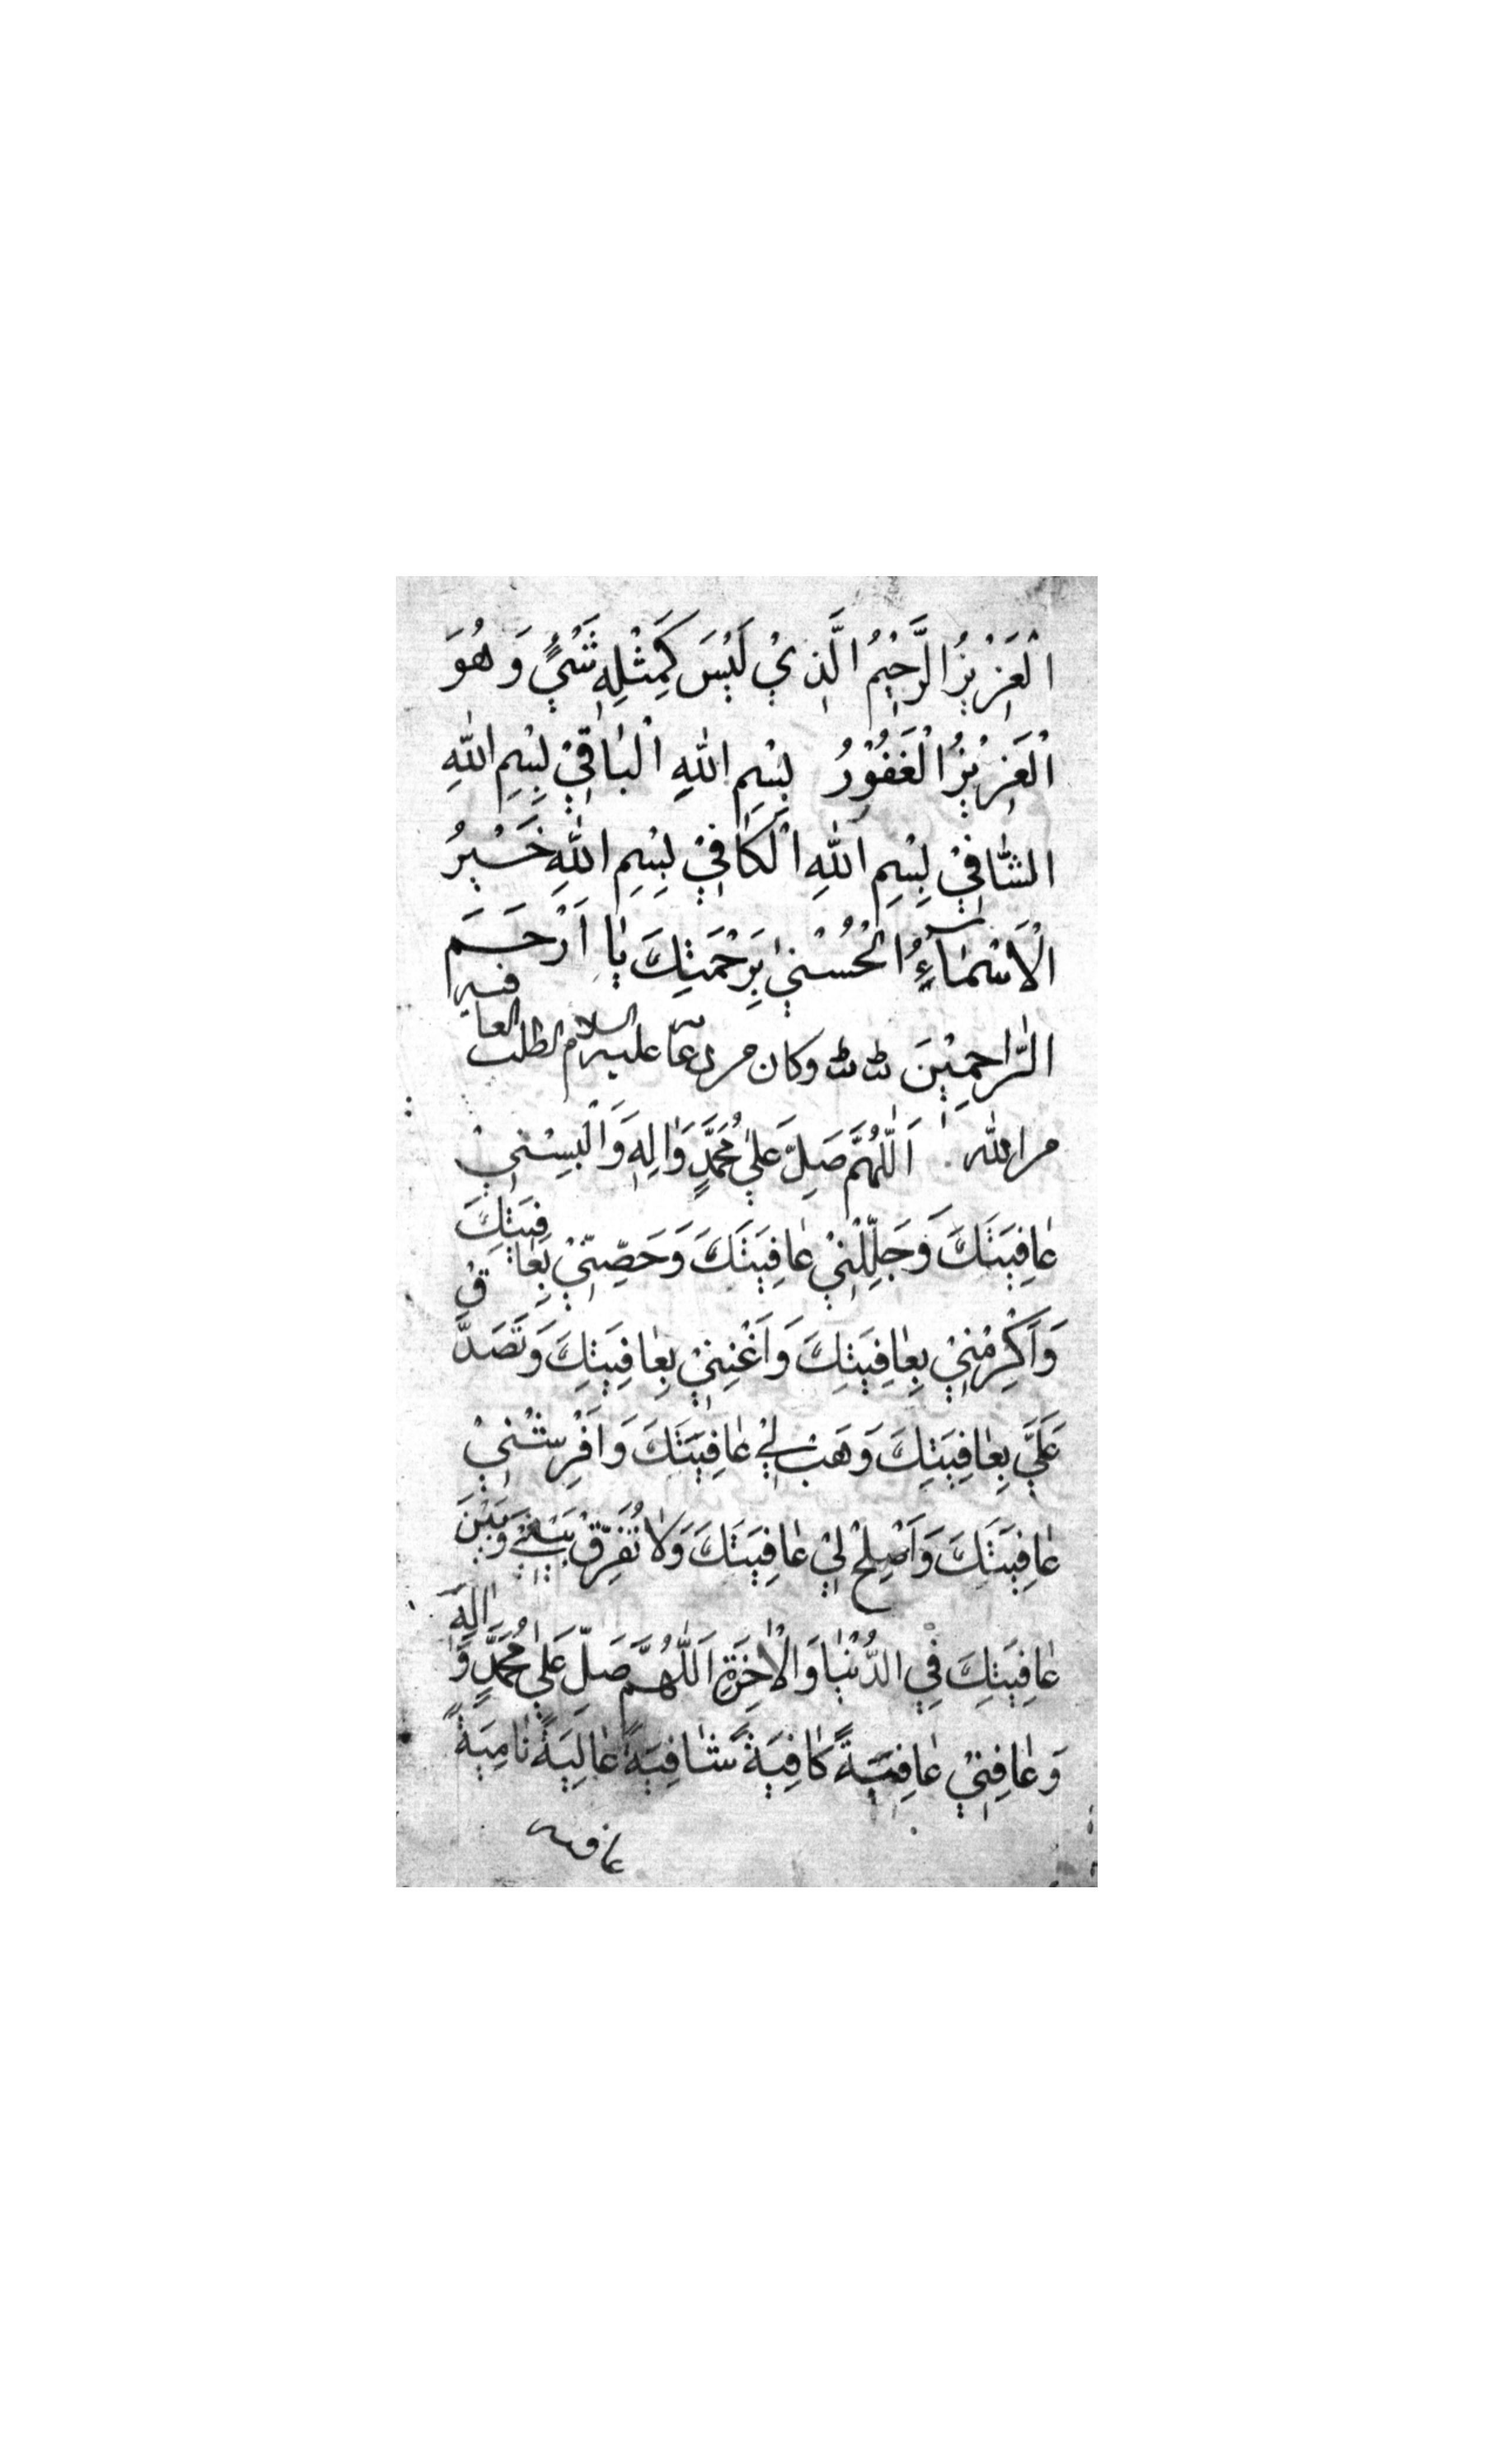 الْعَزِيْزُ الرَّحِيْمُ الَّذِيْ لَيْسَ كَمِثْلِهِ شَيْءٌ وَهُوَ
الْعَزِيْزُ الْغَفُوْرُ بِسْمِ اللّٰهِ الْبَاقِيْ بِسْمِ اللّٰهِ
الشَّافِيْ بِسْمِ اللّٰهِ الْكَافِيْ بِسْمِ اللّٰهِ خَيْرُ
الْاَسْمَآءِ الْحُسْنٰى بِرَحْمَتِكَ يَا اَرْحَمَ
الرَّاحِمِيْنَ وكان من دعائه عليه السلام لطلب العافية
من الله اَللّٰهُمَّ صَلِّ عَلٰى مُحَمَّدٍ وَاٰلِهِ وَاَلْبِسْنِيْ
عَافِيَتَكَ وَجَلِّلْنِيْ عَافِيَتَكَ وَحَصِّنِّيْ بِعَافِيَتِكَ
وَاَكْرِمْنِيْ بِعَافِيَتِكَ وَاَغْنِنِيْ بِعَافِيَتِكَ وَتَصَدَّقْ
عَلَيَّ بِعَافِيَتِكَ وَهَبْ لِيْ عَافِيَتَكَ وَاَفْرِشْنِيْ
عَافِيَتَكَ وَاَصْلِحْ لِيْ عَافِيَتَكَ وَلَا تُفَرِّقْ بَيْنِيْ وَبَيْنَ
عَافِيَتِكَ فِي الدُّنْيَا وَالْاٰخِرَةِ اَللّٰهُمَّ صَلِّ عَلٰى مُحَمَّدٍ وَاٰلِهِ
وَعَافِنِيْ عَافِيَةً كَافِيَةً شَافِيَةً عَالِيَةً نَامِيَةً
عافية